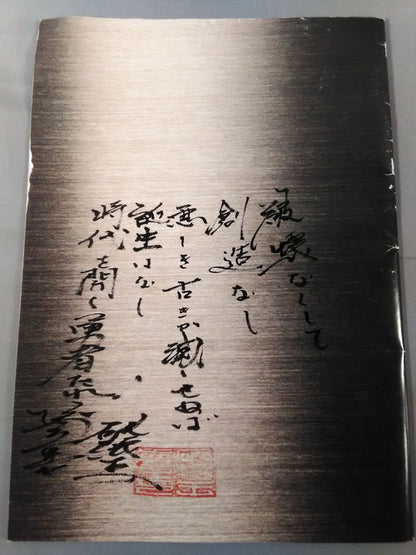 破壊なくして
創造なし
悪しき古きが滅せねば
誕生はなし
時代を開く勇者たれ